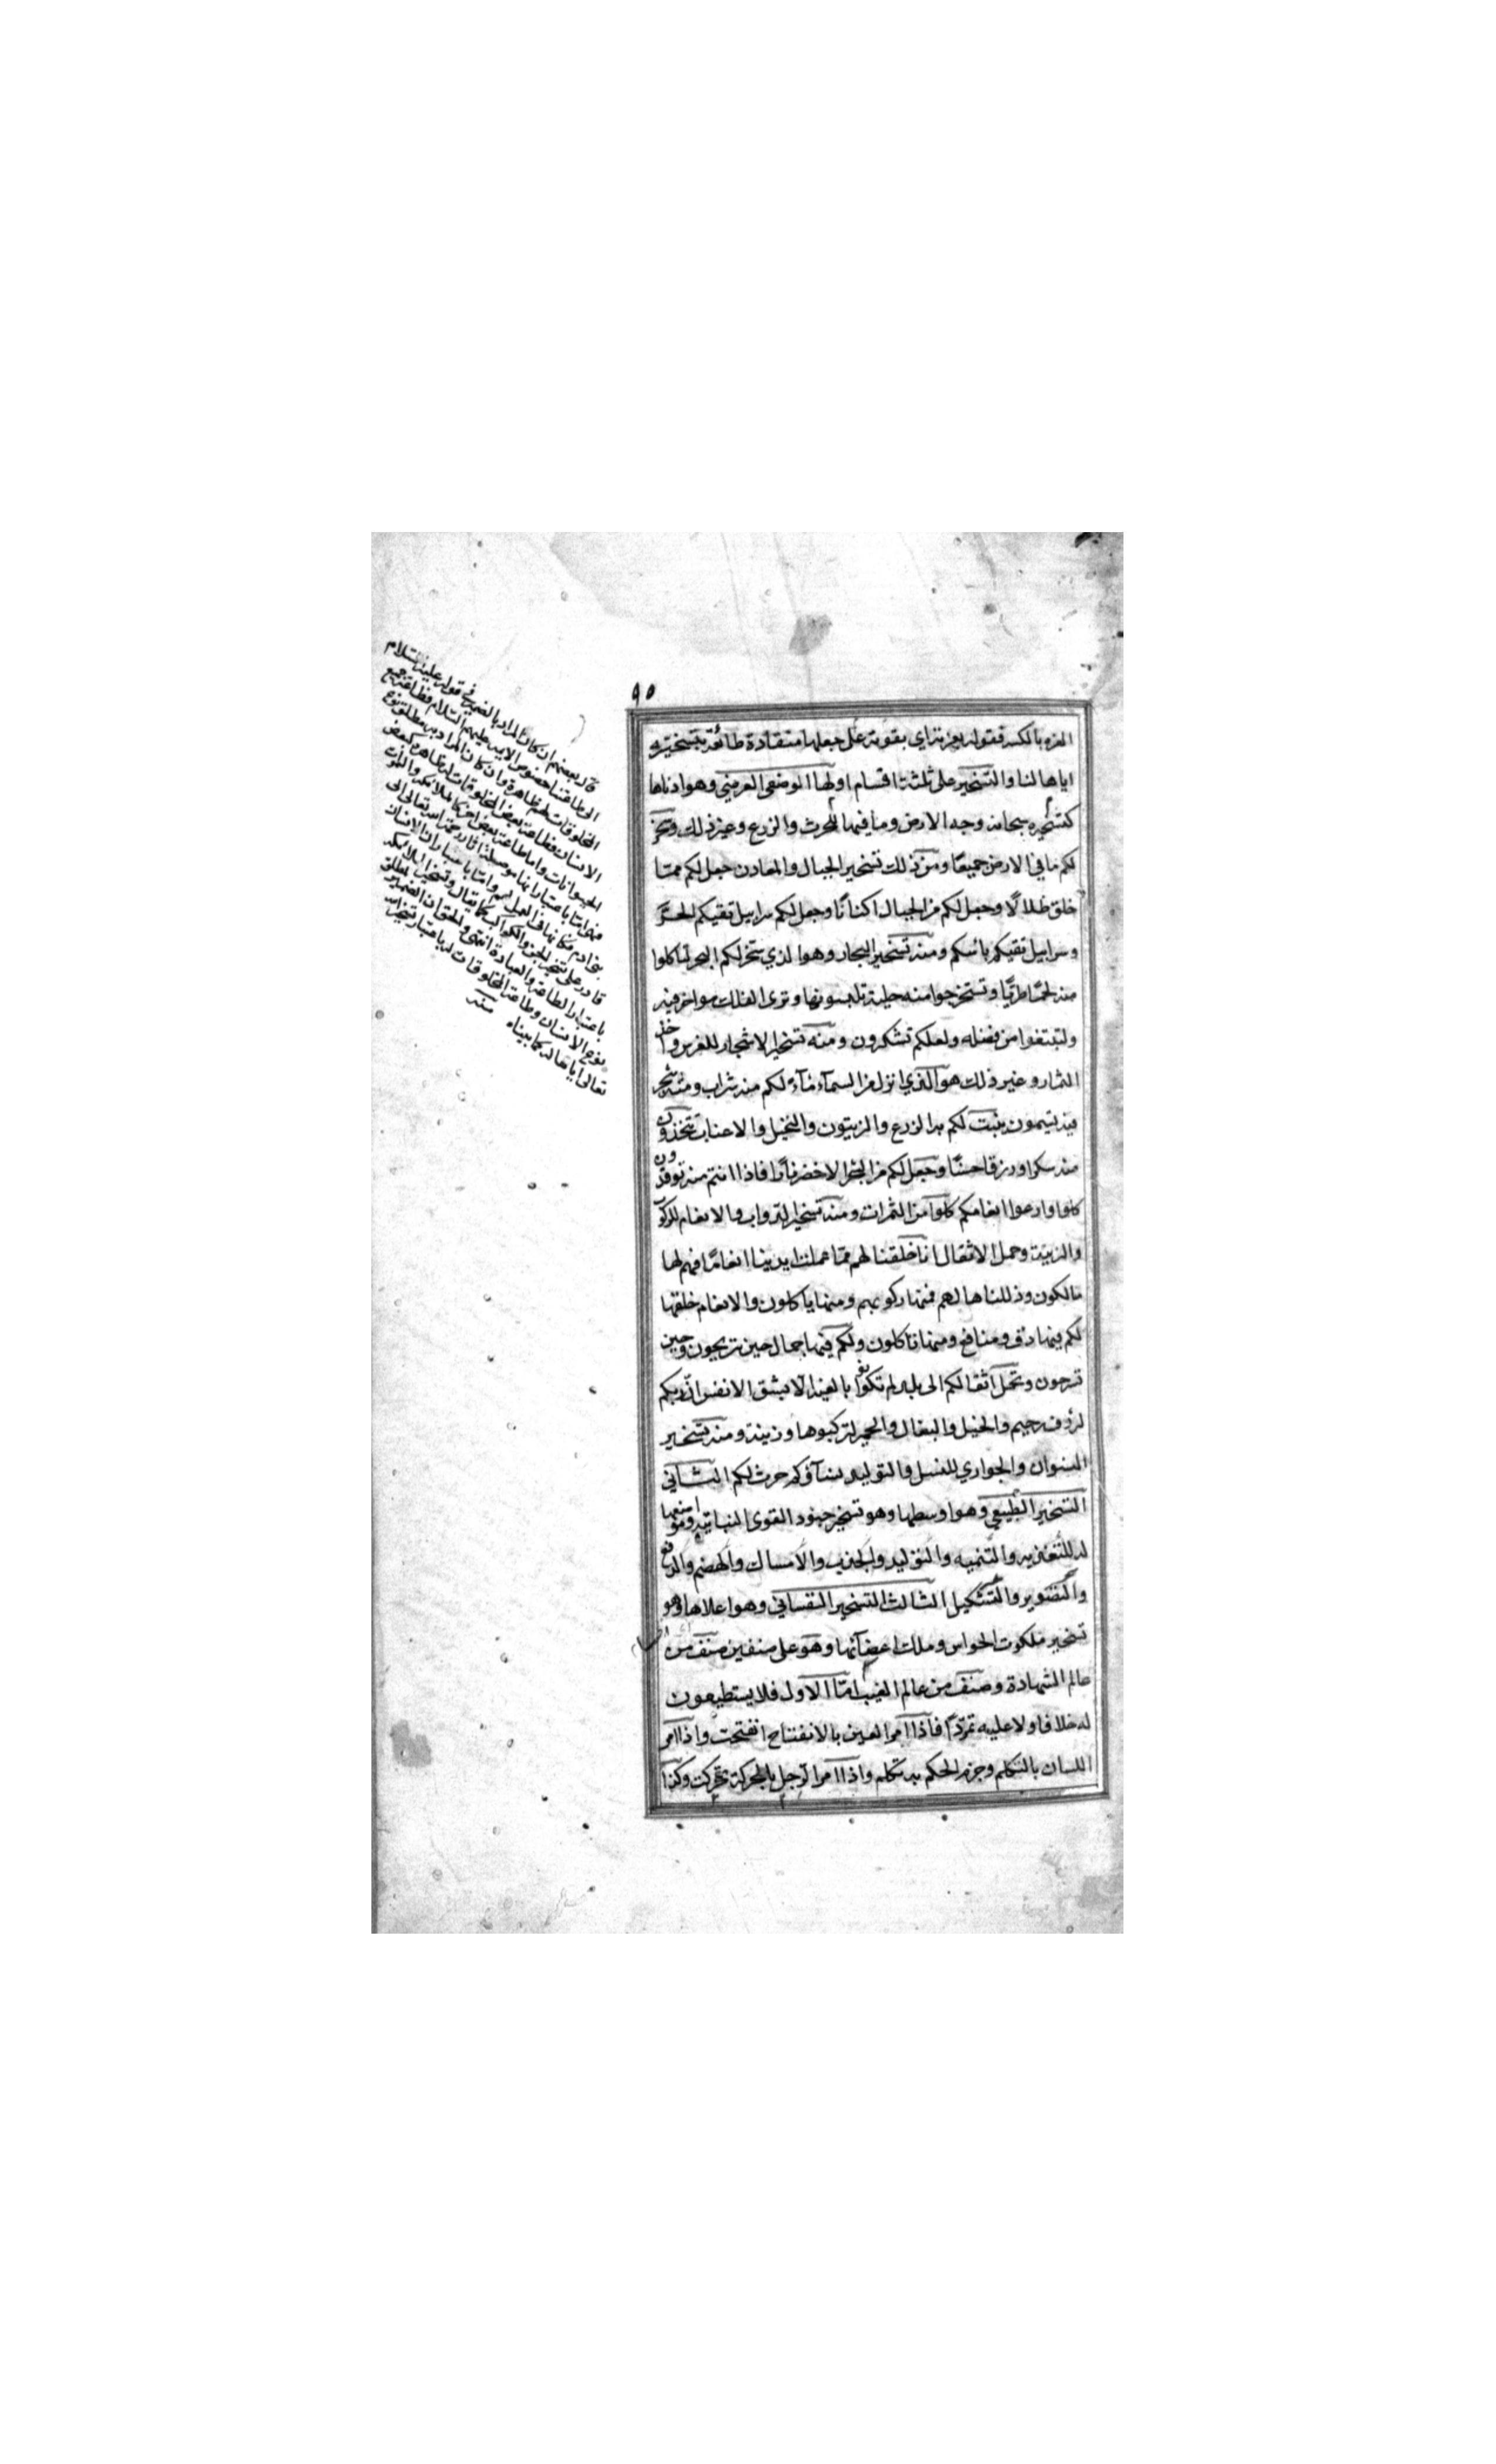 ٩٥
العزة بالكسر فقوله بعزته اي بقوته على جعلها منقادة طائعة بتسخيره
اياها لنا والتسخير على ثلثة اقسام اولها الوضعي العرضي وهو ادناها
كتسخيره سبحانه وجه الارض وما فيها للحرث والزرع وغير ذلك وسخر
لكم ما في الارض جميعًا ومن ذلك تسخير الجبال والمعادن جعل لكم ممّا
خلق ظلالًا وجعل لكم من الجبال اكنانًا وجعل لكم سرابيل تقيكم الحرّ
وسرابيل تقيكم باسكم ومنه تسخير البحار وهو الذي سخر لكم البحر لتاكلوا
منه لحمًا طريًّا وتستخرجوا منه حلية تلبسونها وترى الفلك مواخر فيه
ولتبتغوا من فضله ولعلكم تشكرون ومنه تسخير الاشجار للغرس واخذ
الثمار وغير ذلك هو الذي انزل من السماء ماء لكم منه شراب ومنه شجر
فيه تسيمون ينبت لكم به الزرع والزيتون والنخيل والاعناب تتخذون
منه سكرا ورزقا حسنًا وجعل لكم من الشجر الاخضر نارًا فاذا انتم منه توقدون
كلوا وارعوا انعامكم كلوا من الثمرات ومنه تسخير الدواب والانعام للركوب
والزينة وحمل الاثقال انا خلقنا لهم ممّا عملت ايدينا انعامًا فهم لها
مالكون وذللناها لهم فمنها ركوبهم ومنها ياكلون والانعام خلقها
لكم فيها دفء ومنافع ومنها تاكلون ولكم فيها جمال حين تريحون وحين
تسرحون وتحمل اثقالكم الى بلد لم تكونوا بالغيه الّا بشق الانفس انّ ربكم
لرؤف رحيم والخيل والبغال والحمير لتركبوها وزينة ومنه تسخير
النسوان والجواري للنسل والتوليد نساؤكم حرث لكم الثاني
التسخير الطبيعي وهو اوسطها وهو تسخير جنود القوى النباتية ومواضعها
له للتغذيه والتنميه والتوليد والجذب والامساك والهضم والدفع
والتصوير والتشكيل الثالث التسخير النفساني وهو اعلاها وهو
تسخير ملكوت الحواس وملك اعضائها وهو على صنفين صنف من
عالم الشهادة وصنف من عالم الغيب امّا الاول فلا يستطيعون
له خلافا ولا عليه تمرّدًا فاذا امر العين بالانفتاح انفتحت واذا امر
اللسان بالتكلم وجزم الحكم به تكلم واذا امر الرجل بالحركة تحركت وكذا
قال بعضهم ان كان المراد بالضمير في قوله عليه السلام
الى طاعتنا خصوص الائمه عليهم السلام فطاعة جميع
المخلوقات لهم ظاهرة وان كان المراد به مطلق نوع
الانسان فطاعة بعض المخلوقات له ظاهرة كبعض
الحيوانات واما طاعة بعض آخر كالملائكه
باعتبار الطاعة والعبادة
نوع الانسان وطاعة المخلوقات له باعتبار تسخير الله
تعالى اياها له كما بيناه منه